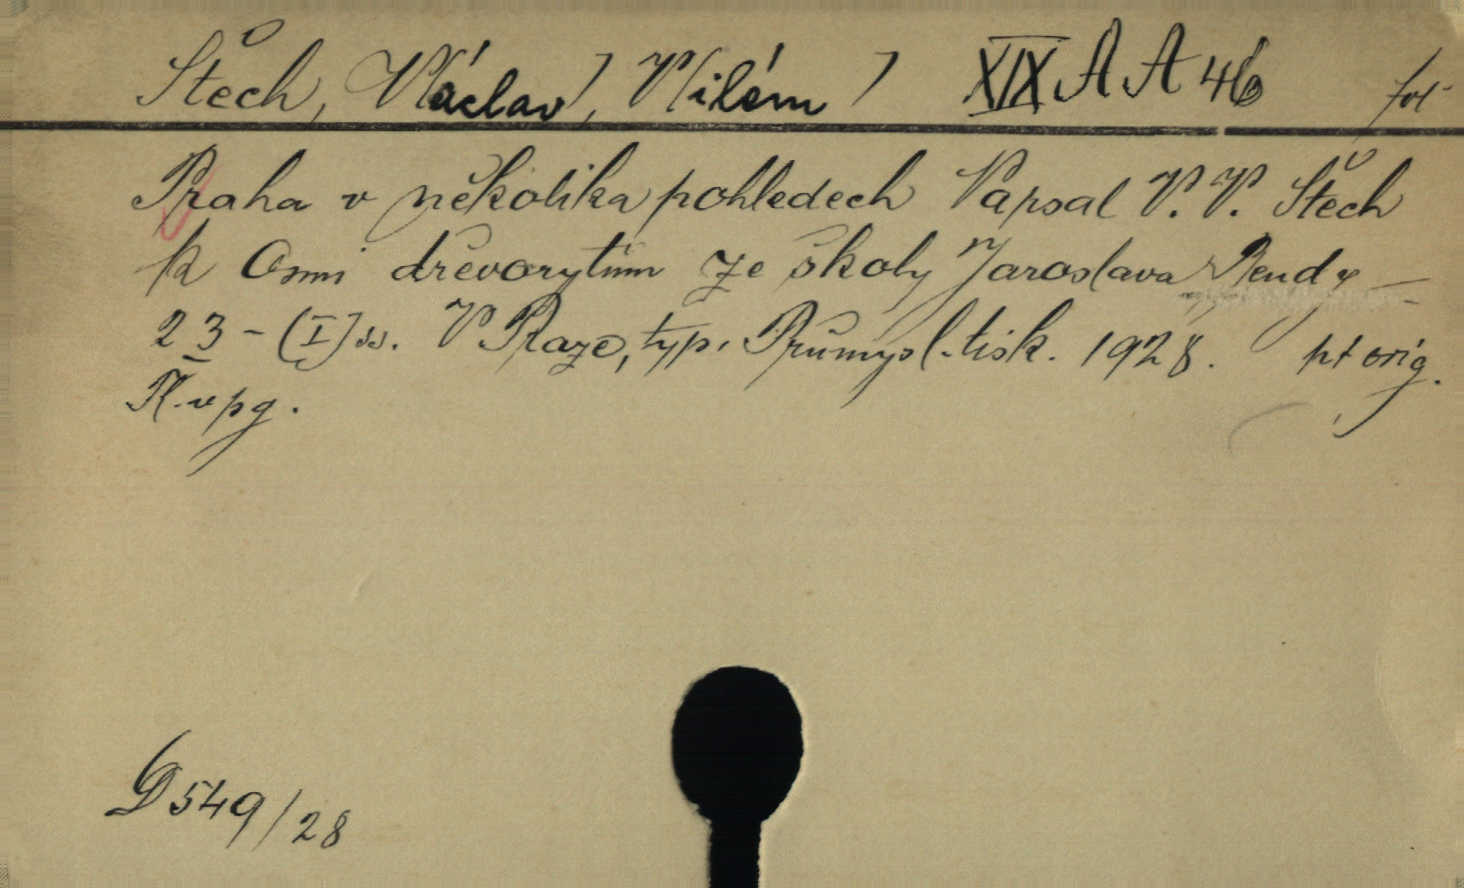 Štech, V[áclav], V[ilém] XIX AA 46 fol
Praha v několika pohledech Napsal V. V. Štech
k Osmi dřevorytům ze školy Jaroslava Bendy –
23 – (I) ss. V Praze, typ. Průmysl. tisk. 1928. pt orig.
K. v pg.
D 549/28